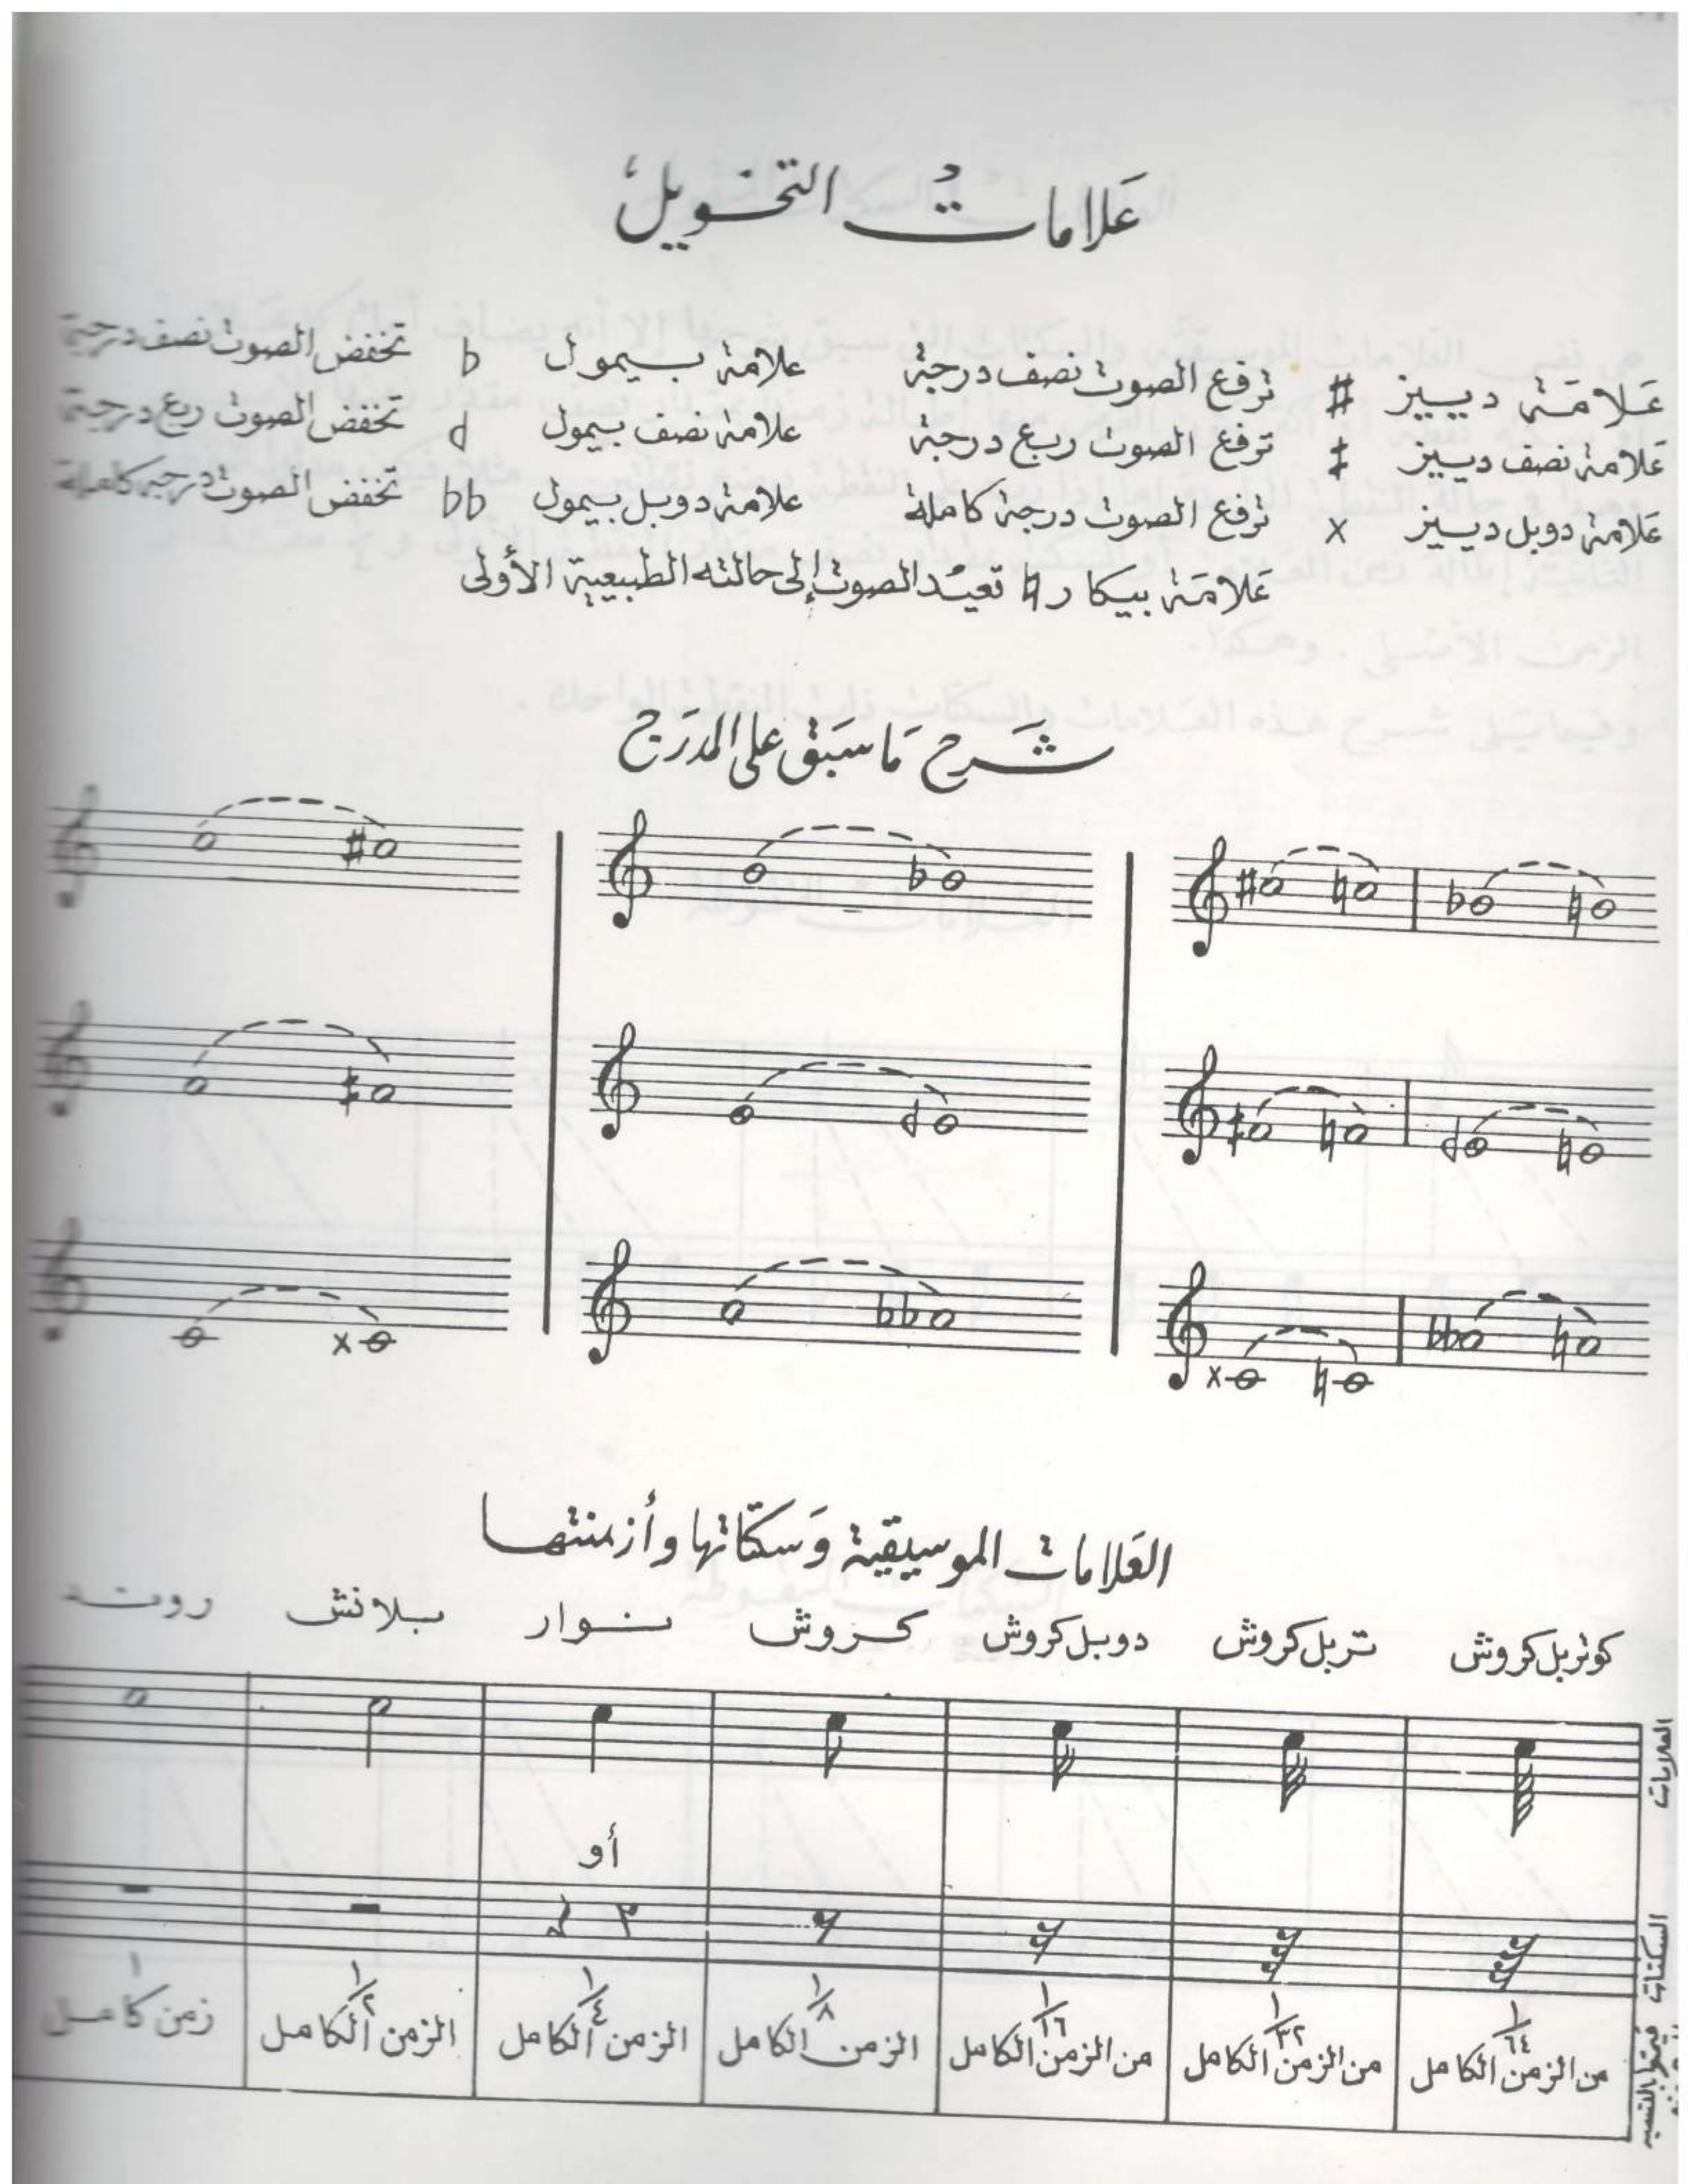 علامات التحويل
علامة دييز # ترفع الصوت نصف درجة علامة بيمول b تخفض الصوت نصف درجة
علامة نصف دييز ‡ ترفع الصوت ربع درجة علامة نصف بيمول d تخفض الصوت ربع درجة
علامة دوبل دييز x ترفع الصوت درجة كاملة علامة دوبل بيمول bb تخفض الصوت درجة كاملة
علامة بيكار ♮ تعيد الصوت إلى حالته الطبيعية الأولى
شرح ما سبق على المدرج
العلامات الموسيقية وسكتاتها وأزمنتها
كوتربل كروش تربل كروش دوبل كروش كروش نوار بلانش روند
العلامات
أو
السكتات
١/٦٤ من الزمن الكامل ١/٣٢ من الزمن الكامل ١/١٦ من الزمن الكامل ١/٨ الزمن الكامل ١/٤ الزمن الكامل ١/٢ الزمن الكامل ١ زمن كامل